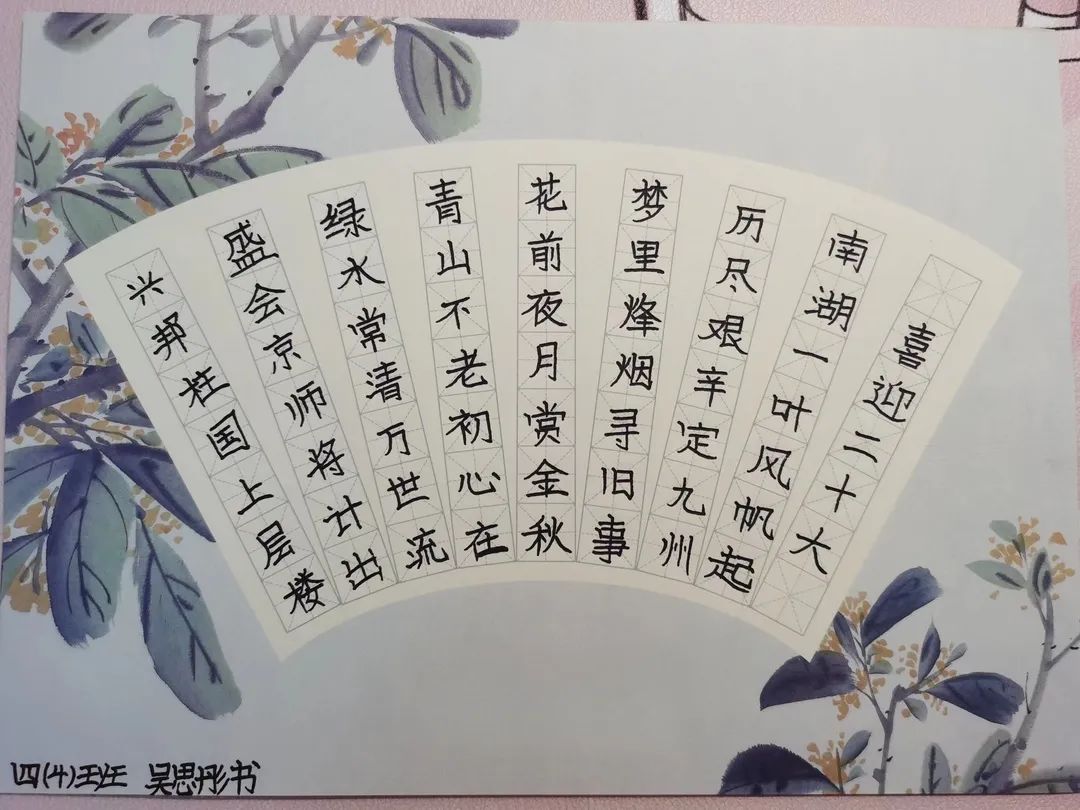 喜迎二十大
南湖一叶风帆起
历尽艰辛定九州
梦里烽烟寻旧事
花前夜月赏金秋
青山不老初心在
绿水常清万世流
盛会京师将计出
兴邦柱国上层楼
四(4)班 吴思彤书